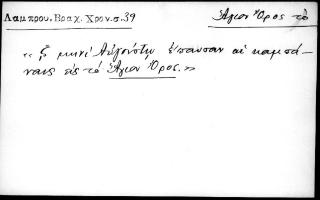 Λαμπρου. Βραχ. Χρον. σ. 39
Ἅγιον Ὄρος τὸ
« ξ μηνὶ Αὐγούστῳ ἔπαυσαν αἱ καμπά-
ναις εἰς τὸ Ἅγιον Ὄρος. »